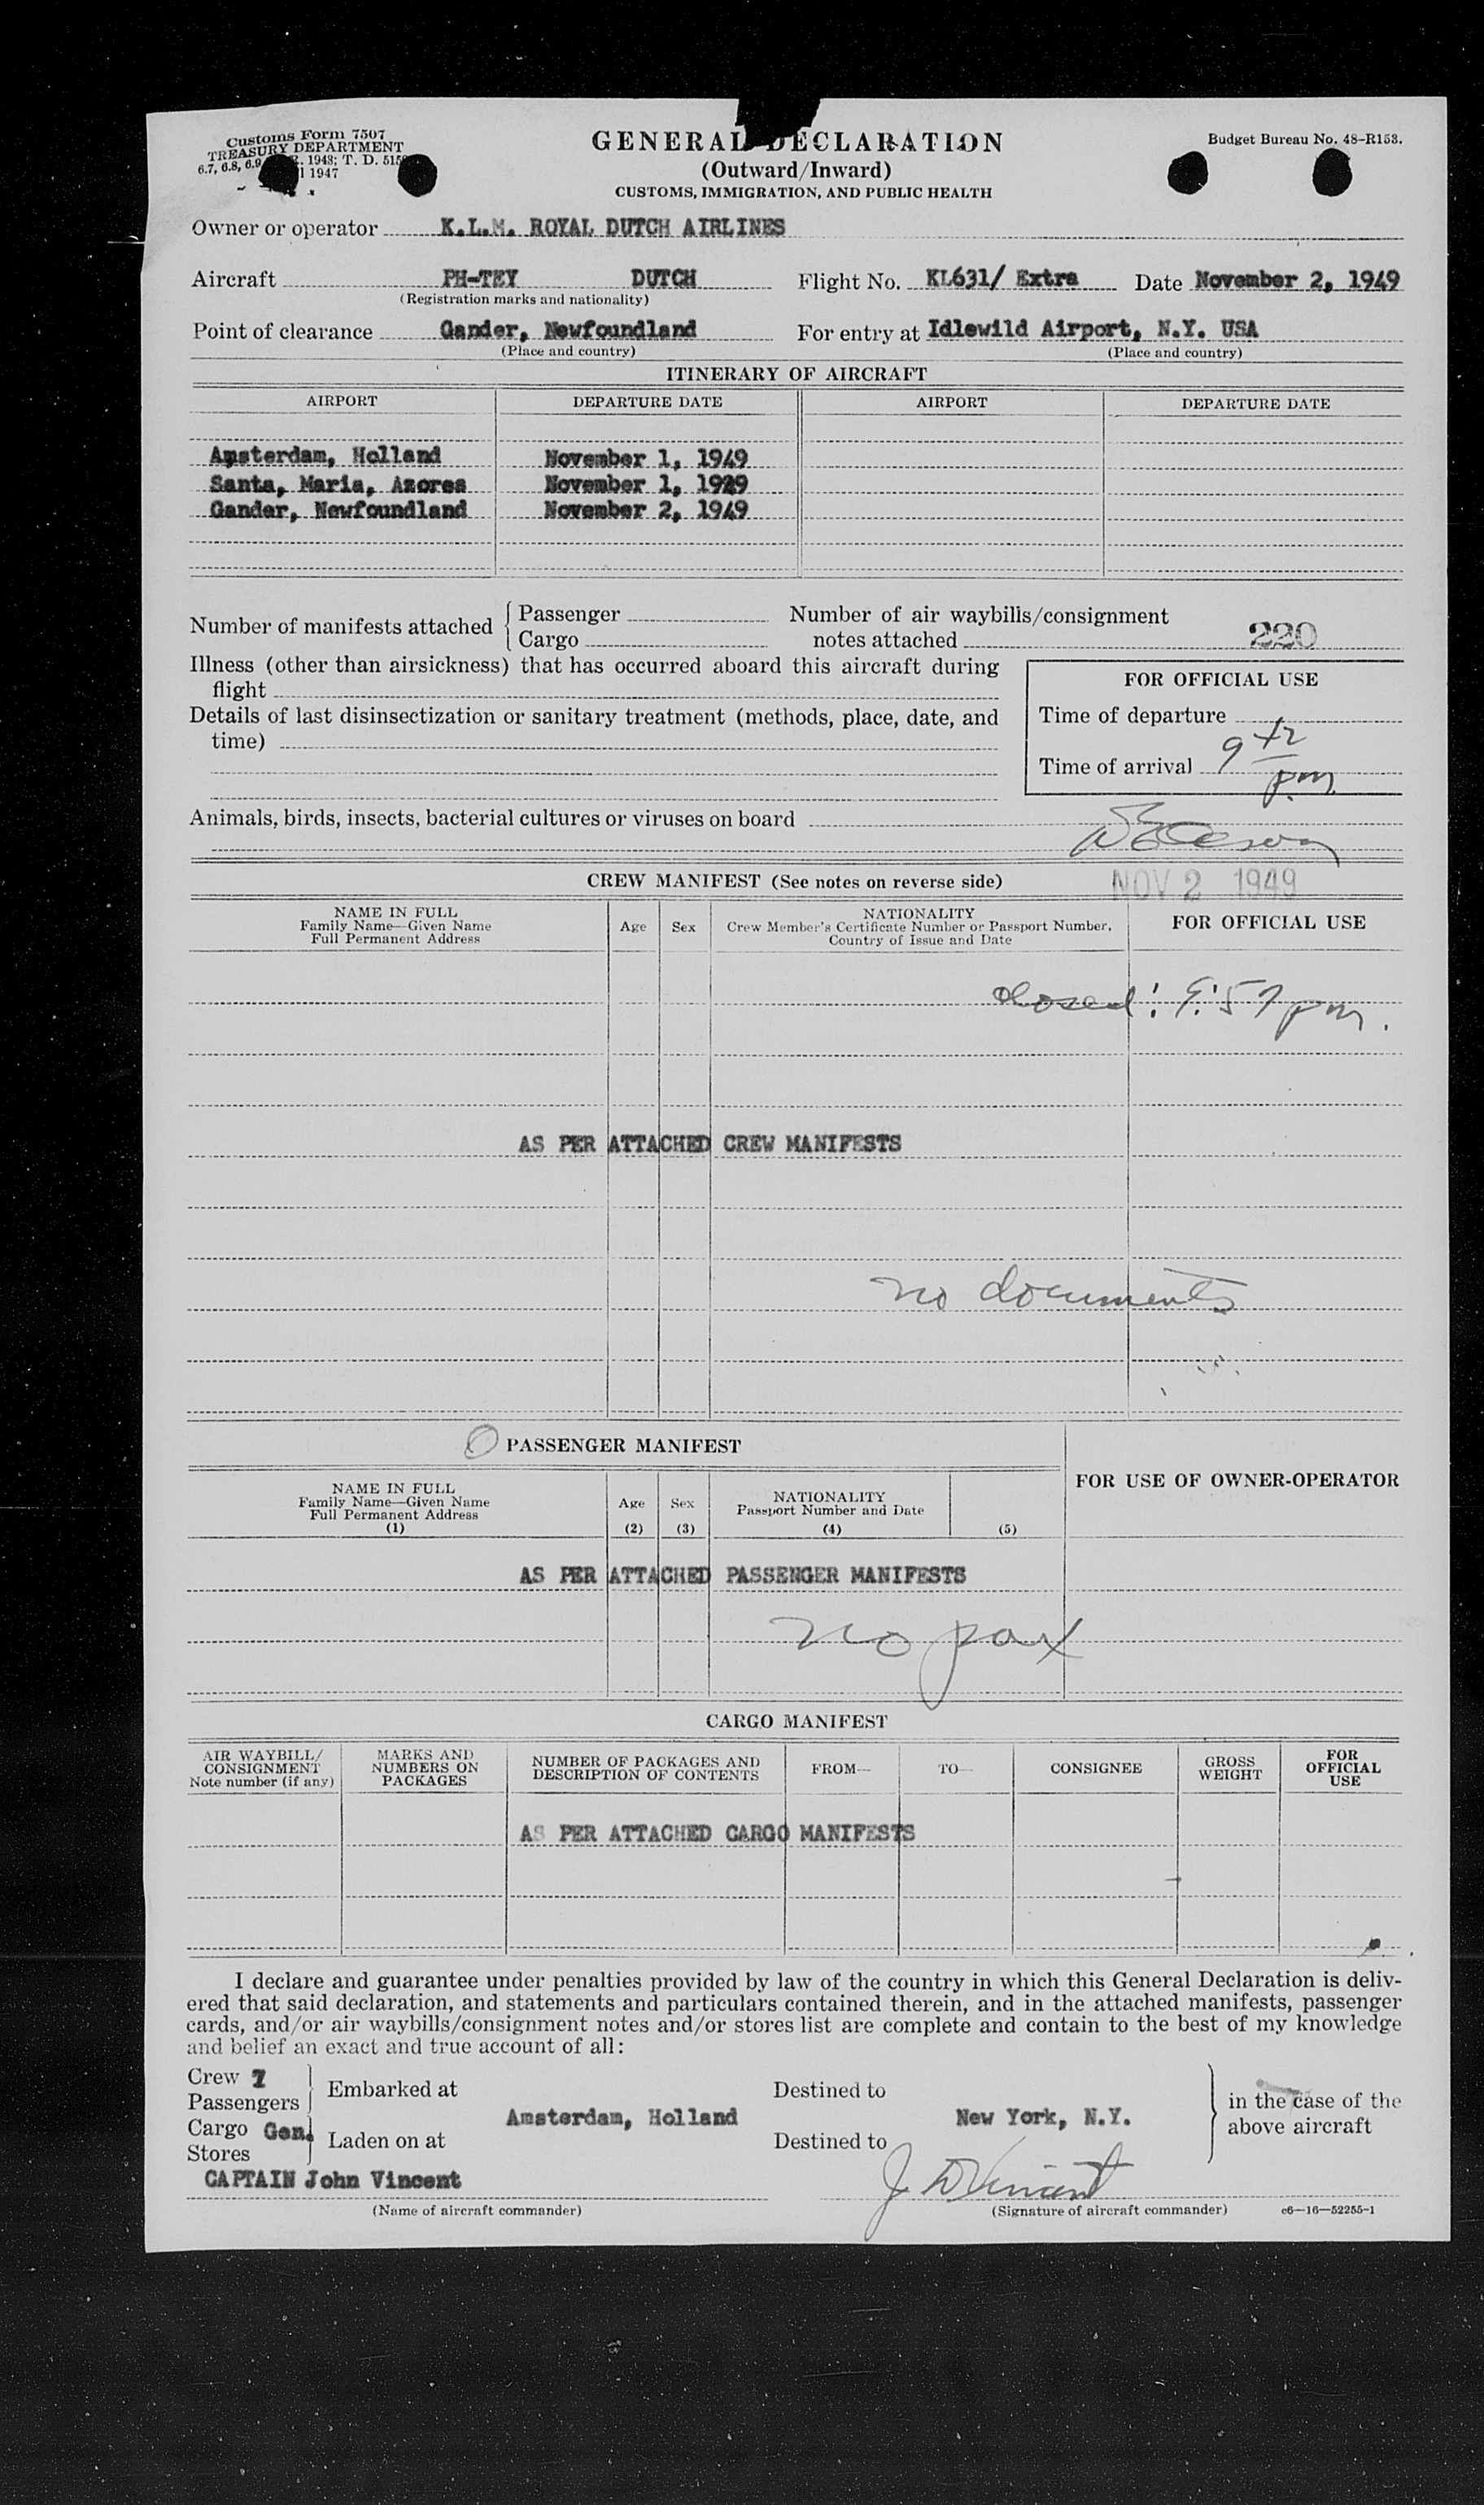 Customs Form 7507
TREASURY DEPARTMENT
6.7, 6.8, 6.9 1948; T. D. 515
1947
GENERAL DECLARATION
(Outward/Inward)
CUSTOMS, IMMIGRATION, AND PUBLIC HEALTH
Budget Bureau No. 48-R153.
Owner or operator K.L.M. ROYAL DUTCH AIRLINES
Aircraft PH-TEY DUTCH Flight No. KL631/ Extra Date November 2, 1949
(Registration marks and nationality)
Point of clearance Gander, Newfoundland For entry at Idlewild Airport, N.Y. USA
(Place and country) (Place and country)
ITINERARY OF AIRCRAFT
AIRPORT DEPARTURE DATE AIRPORT DEPARTURE DATE
Amsterdam, Holland November 1, 1949
Santa, Maria, Azores November 1, 1929
Gander, Newfoundland November 2, 1949
Number of manifests attached { Passenger
Cargo
Number of air waybills/consignment
notes attached 220
Illness (other than airsickness) that has occurred aboard this aircraft during
flight
Details of last disinsectization or sanitary treatment (methods, place, date, and
time)
FOR OFFICIAL USE
Time of departure
Time of arrival 9 pm
Animals, birds, insects, bacterial cultures or viruses on board
CREW MANIFEST (See notes on reverse side)
NOV 2 1949
NAME IN FULL
Family Name—Given Name
Full Permanent Address
Age Sex
NATIONALITY
Crew Member's Certificate Number or Passport Number,
Country of Issue and Date
FOR OFFICIAL USE
closed: 9:57 pm.
AS PER ATTACHED CREW MANIFESTS
no documents
O PASSENGER MANIFEST
NAME IN FULL
Family Name—Given Name
Full Permanent Address
(1)
Age
(2)
Sex
(3)
NATIONALITY
Passport Number and Date
(4)
(5)
FOR USE OF OWNER-OPERATOR
AS PER ATTACHED PASSENGER MANIFESTS
no pax
CARGO MANIFEST
AIR WAYBILL/
CONSIGNMENT
Note number (if any)
MARKS AND
NUMBERS ON
PACKAGES
NUMBER OF PACKAGES AND
DESCRIPTION OF CONTENTS
FROM—
TO—
CONSIGNEE
GROSS
WEIGHT
FOR
OFFICIAL
USE
AS PER ATTACHED CARGO MANIFESTS
I declare and guarantee under penalties provided by law of the country in which this General Declaration is deliv-
ered that said declaration, and statements and particulars contained therein, and in the attached manifests, passenger
cards, and/or air waybills/consignment notes and/or stores list are complete and contain to the best of my knowledge
and belief an exact and true account of all:
Crew 7
Passengers
Embarked at
Destined to
Amsterdam, Holland New York, N.Y.
Cargo Gen.
Stores
Laden on at
Destined to
in the case of the
above aircraft
CAPTAIN John Vincent
J. D Vincent
(Name of aircraft commander)
(Signature of aircraft commander)
c6—16—52255-1